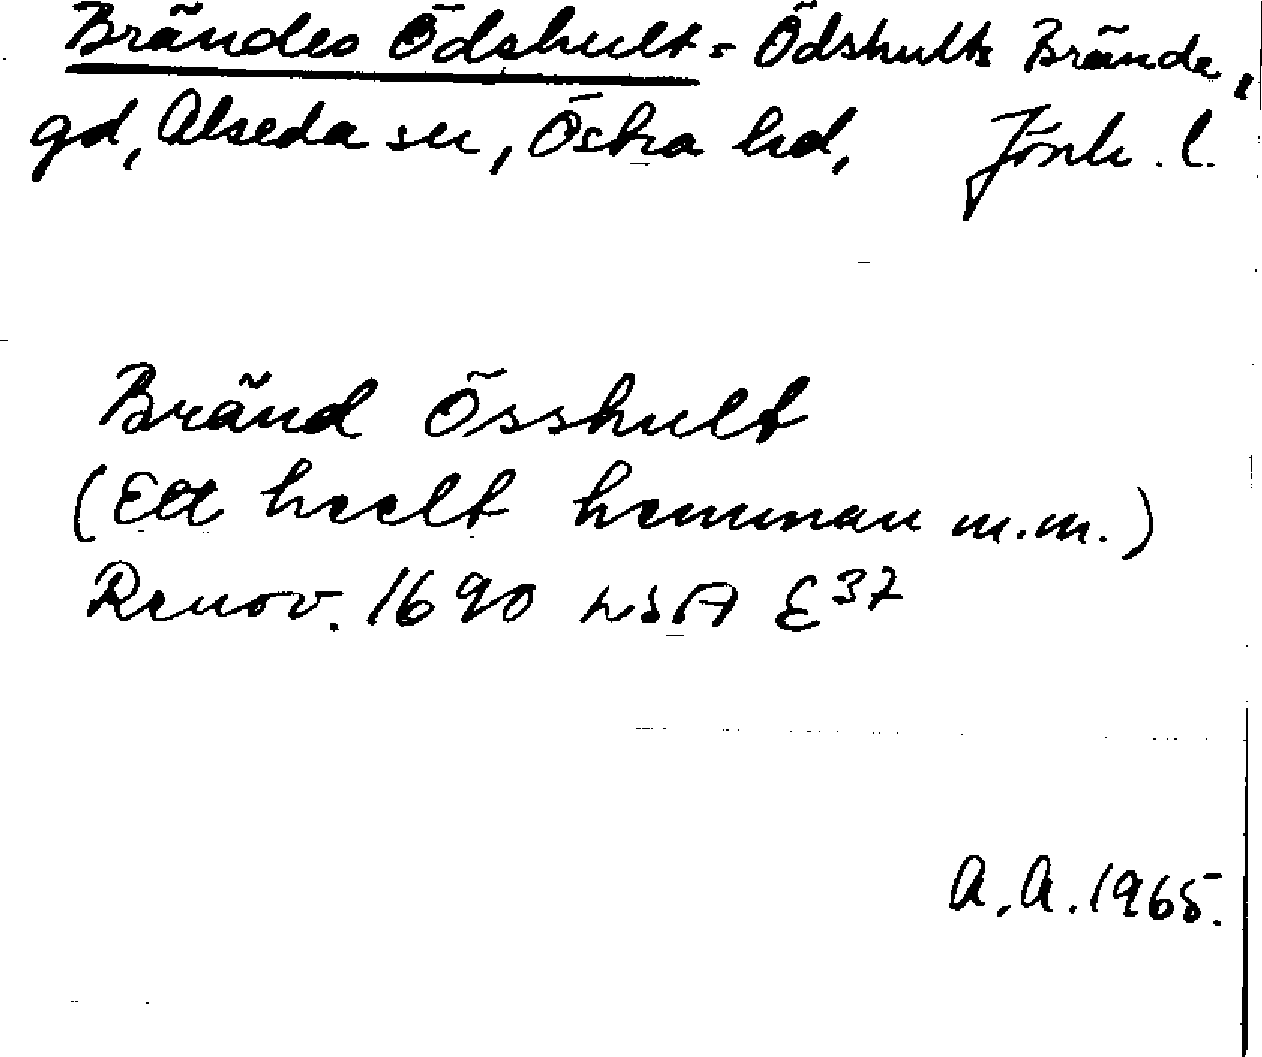 Brändes Ödshult = Ödshults Brände,
gd, Alseda sn, Östra hd, Jönk. l.
Bränd Össhult
(Ett heelt hemman m.m.)
Renov. 1690 LSA E37
A.A. 1965.